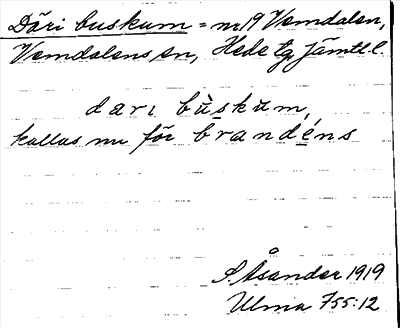 Däri buskum = nr 19 Vemdalen,
Vemdalens sn, Hede tg Jämtl. l.
darɩ bùskum,
kallas nu för brandéns
S Åsander 1919
Ulma 755:12